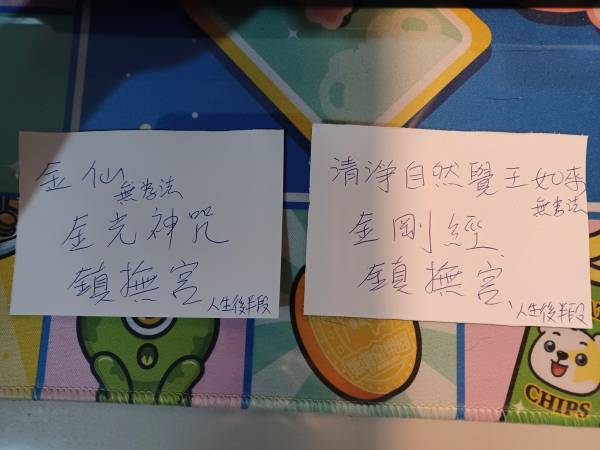 金仙
無為法
金光神咒
鎮撫宮
人生後半段
清淨自然覺王如來
無為法
金剛經
鎮撫宮
人生後半段
CHIPS